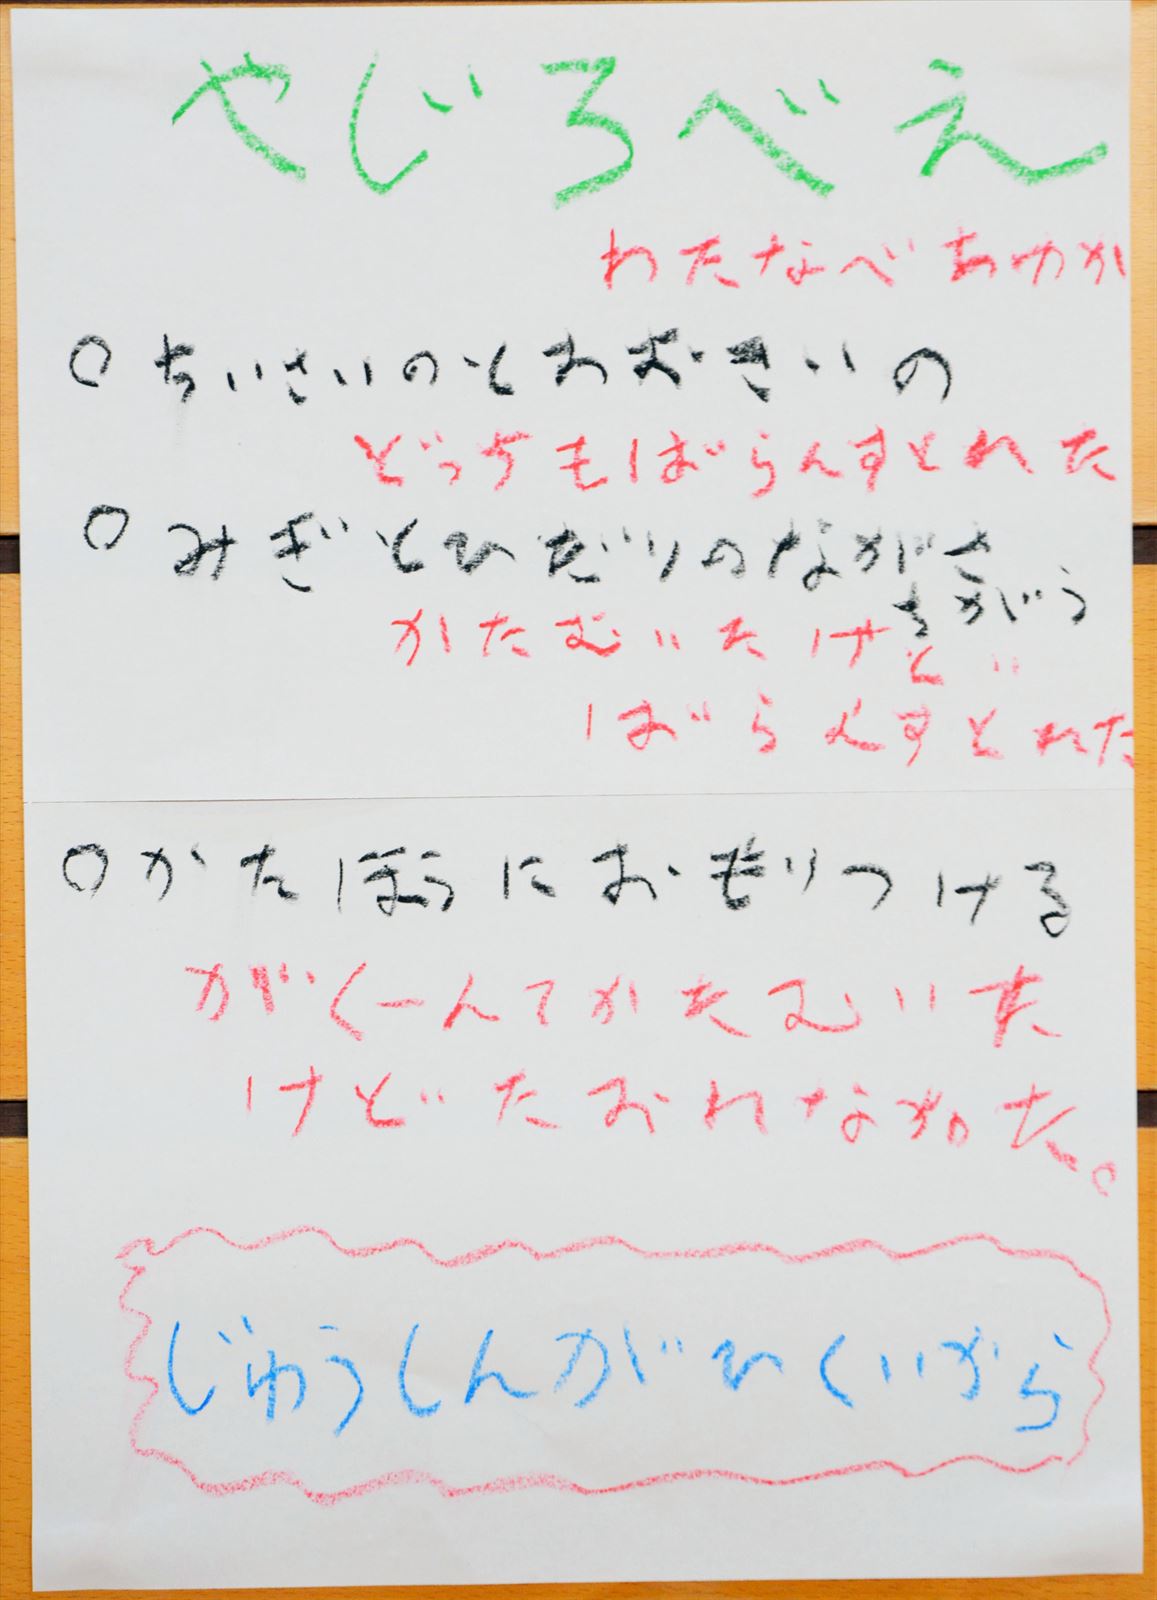 やじろべえ
わたなべあゆか
○ちいさいのとおおきいの
どっちもばらんすとれた
○みぎとひだりのながさ
ちがう
かたむいたけど
ばらんすとれた
○かたほうにおもりつける
がくーんてかたむいた
けどたおれなかった。
じゅうしんがひくいから